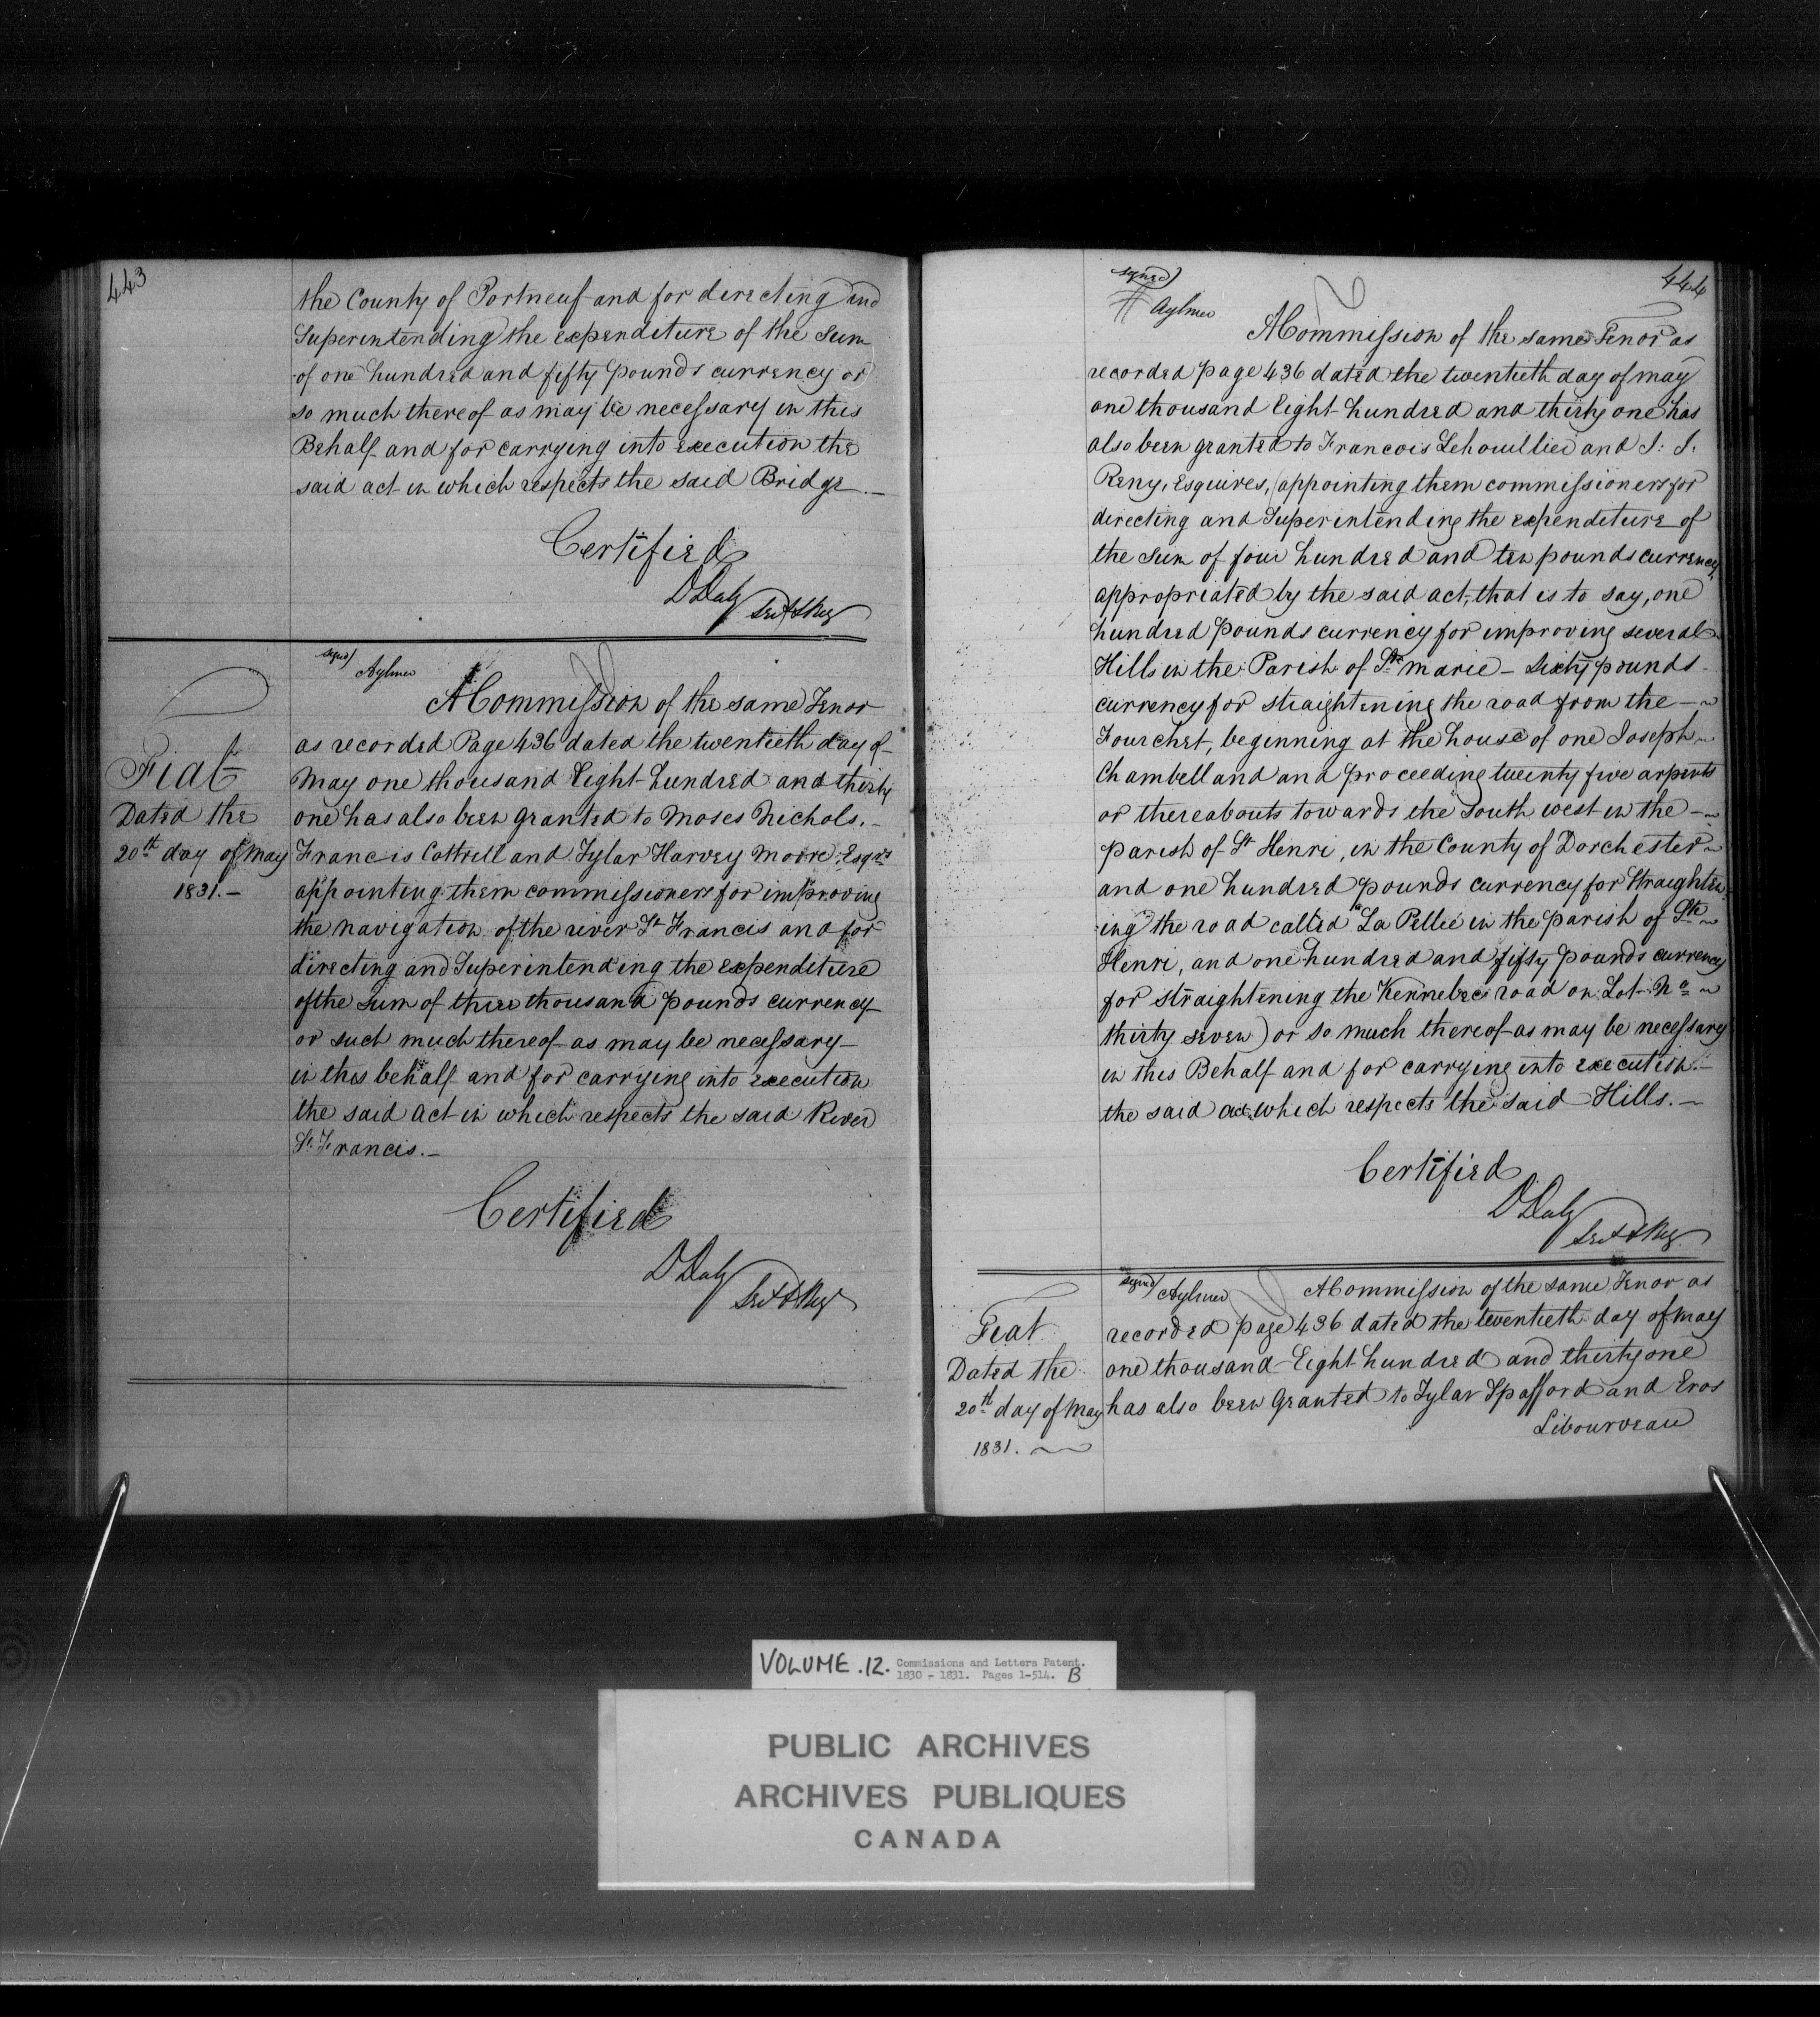 443
the County of Portneuf and for directing and
Superintending the expenditure of the Sum
of one hundred and fifty pounds currency or
so much thereof as may be necessary in this
Behalf and for carrying into execution the
said act in which respects the said Bridge.—
Certified
D Daly
Sec & Reg
signed)
Aylmer
A Commission of the same Tenor
as recorded Page 436 dated the twentieth day of
May one thousand Eight hundred and thirty
one has also been granted to Moses Nichols.
Francis Cottrell and Tylar Harvey Moore, Esqrs
appointing them commissioners for improving
the navigation of the river St Francis and for
directing and Superintending the expenditure
of the sum of three thousand pounds currency
or such much thereof as may be necessary
in this behalf and for carrying into execution
the said act in which respects the said River
St Francis.—
Fiat
Dated the
20th day of May
1831.—
Certified
D Daly
Sec & Reg
444
signed)
Aylmer
A Commission of the same Tenor as
recorded page 436 dated the twentieth day of may
one thousand Eight hundred and thirty one has
also been granted to Francois Lehouillier and J: J.
Reny, Esquires, (appointing them commissioners for
directing and Superintending the expenditure of
the sum of four hundred and ten pounds currency
appropriated by the said act, that is to say, one
hundred pounds currency for improving several
Hills in the Parish of Ste marie – Sixty pounds
currency for straightening the road from the —
Fourchet, beginning at the house of one Joseph
Chambelland and proceeding twenty five arpents
or thereabouts towards the South west in the —
parish of St Henri, in the County of Dorchester
and one hundred pounds currency for Straighten-
ing the road called "La Pellee in the parish of Ste
Henri, and one hundred and fifty pounds currency
for straightening the Kennebec road on Lot No
thirty seven) or so much thereof as may be necessary
in this Behalf and for carrying into execution.—
the said act which respects the said Hills.—
Certified
D Daly
Sec & Reg
signed) Aylmer A Commission of the same Tenor as
recorded page 436 dated the twentieth day of may
one thousand Eight hundred and thirty one
has also been Granted to Tylar Spafford and Eros
Libourveau
Fiat
Dated the
20th day of May
1831.
VOLUME .12. Commissions and Letters Patent.
1830 - 1831. Pages 1-514. B
PUBLIC ARCHIVES
ARCHIVES PUBLIQUES
CANADA